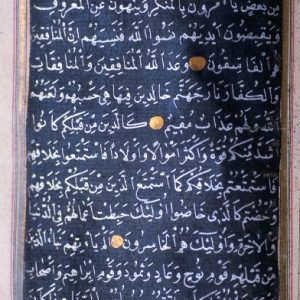 من بعض يأمرون بالمنكر وينهون عن المعروف
ويقبضون ايديهم نسوا الله فنسيهم ان المنافقين
هم الفاسقون وعد الله المنافقين والمنافقات
والكفار نار جهنم خالدين فيها هي حسبهم ولعنهم
الله ولهم عذاب مقيم كالذين من قبلكم كانوا
اشد منكم قوة واكثر اموالا واولادا فاستمتعوا بخلاقهم
فاستمتعتم بخلاقكم كما استمتع الذين من قبلكم بخلاقهم
وخضتم كالذي خاضوا اولئك حبطت اعمالهم في الدنيا
والاخرة واولئك هم الخاسرون الم يأتهم نبأ الذين
من قبلهم قوم نوح وعاد وثمود وقوم ابرهيم واصحاب